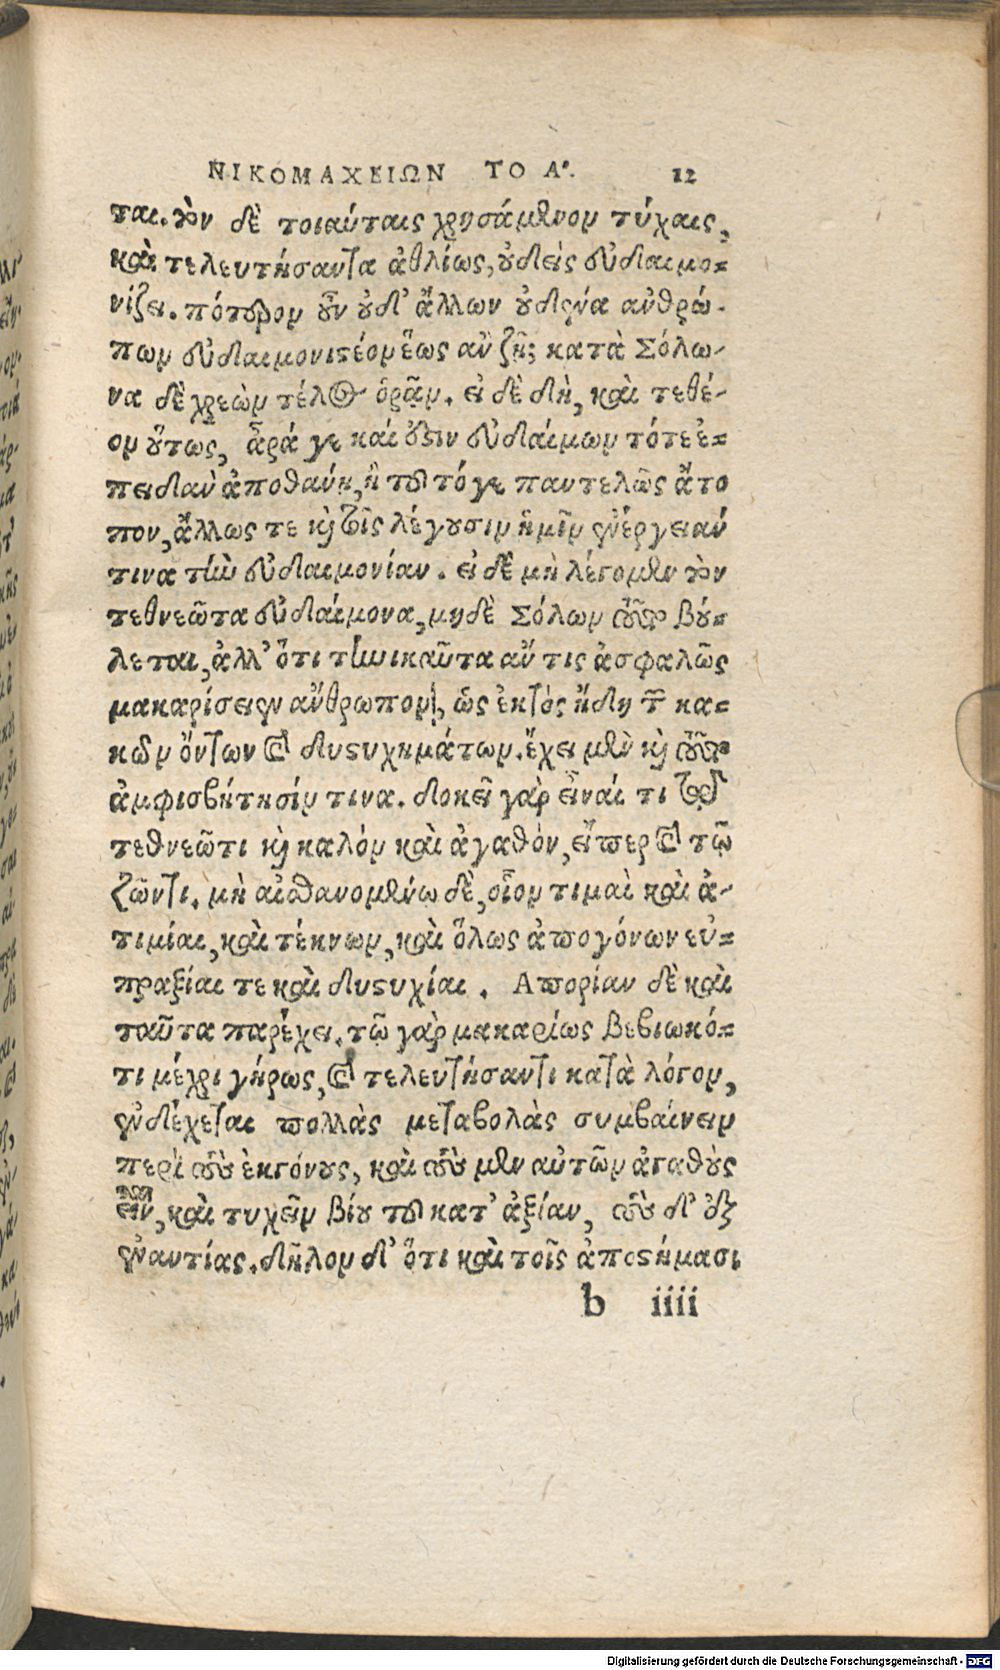 ΝΙΚΟΜΑΧΕΙΩΝ ΤΟ Α. 12
ται. τὸν δὲ τοιαύταις χρησάμενον τύχαις,
καὶ τελευτήσαντα ἀθλίως, οὐδεὶς εὐδαιμο=
νίζει. πότερον οὖν οὐδ' ἄλλων οὐδένα ἀνθρώ-
πων εὐδαιμονιστέον ἕως ἂν ζῇ; κατὰ Σόλω-
να δὲ χρεὼν τέλος ὁρᾶν. εἰ δὲ δὴ, καὶ τεθέ-
ον οὕτως, ἆρά γε καί ἐστιν εὐδαίμων τότε ἐ=
πειδὰν ἀποθάνῃ, ἢ τοῦτό γε παντελῶς ἄτο
πον, ἄλλως τε καὶ τοῖς λέγουσιν ἡμῖν ἐνέργειάν
τινα τὴν εὐδαιμονίαν. εἰ δὲ μὴ λέγομεν τὸν
τεθνεῶτα εὐδαίμονα, μηδὲ Σόλων τοῦτο βού=
λεται, ἀλλ' ὅτι τηνικαῦτα ἄν τις ἀσφαλῶς
μακαρίσειεν ἄνθρωπον, ὡς ἐκτὸς ἤδη τῶν κα=
κῶν ὄντων καὶ δυστυχημάτων. ἔχει μὲν καὶ τοῦτο
ἀμφισβήτησίν τινα. δοκεῖ γὰρ εἶναί τι τῷ
τεθνεῶτι καὶ καλὸν καὶ ἀγαθὸν, εἴπερ καὶ τῷ
ζῶντι. μὴ αἰσθανομένῳ δὲ, οἷον τιμαὶ καὶ ἀ-
τιμίαι, καὶ τέκνων, καὶ ὅλως ἀπογόνων εὐ=
πραξίαι τε καὶ δυστυχίαι. Ἀπορίαν δὲ καὶ
ταῦτα παρέχει. τῷ γὰρ μακαρίως βεβιωκό=
τι μέχρι γήρως, καὶ τελευτήσαντι κατὰ λόγον,
ἐνδέχεται πολλὰς μεταβολὰς συμβαίνειν
περὶ τοὺς ἐκγόνους, καὶ τοὺς μὲν αὐτῶν ἀγαθοὺς
εἶναι, καὶ τυχεῖν βίου τοῦ κατ' ἀξίαν, τοὺς δ' ἐξ
ἐναντίας. δῆλον δ' ὅτι καὶ τοῖς ἀποστήμασι
b iiii
Digitalisierung gefördert durch die Deutsche Forschungsgemeinschaft - DFG